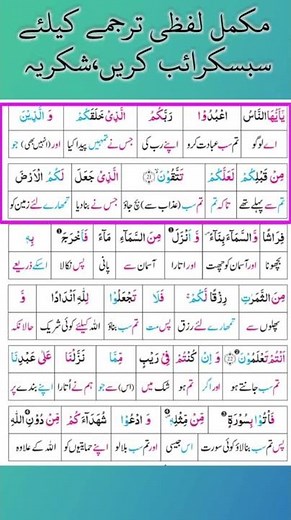 مکمل لفظی ترجمے کیلئے
سبسکرائب کریں،شکریہ
يٰٓاَيُّهَا النَّاسُ اعْبُدُوْا رَبَّكُمُ الَّذِیْ خَلَقَكُمْ وَ الَّذِيْنَ
اے لوگو تم سب عبادت کرو اپنے رب کی جس نے تمہیں پیدا کیا اور (انہیں بھی) جو
مِنْ قَبْلِكُمْ لَعَلَّكُمْ تَتَّقُوْنَ ۙ۲۱ الَّذِیْ جَعَلَ لَكُمُ الْاَرْضَ
تم سے پہلے تھے تاکہ تم تم سب (عذاب سے) بچ جاؤ جس نے بنا دیا تمہارے لئے زمین کو
فِرَاشًا وَّ السَّمَآءَ بِنَآءً ۪ وَّ اَنْزَلَ مِنَ السَّمَآءِ مَآءً فَاَخْرَجَ بِهٖ
بچھونا اور آسمان کو چھت اور اتارا آسمان سے پانی پس نکالا اسکے ذریعے
مِنَ الثَّمَرٰتِ رِزْقًا لَّكُمْ ۚ فَلَا تَجْعَلُوْا لِلّٰهِ اَنْدَادًا وَّ
پھلوں سے رزق تمہارے لئے پس مت تم سب بناؤ اللہ کیلئے کوئی شریک حالانکہ
اَنْتُمْ تَعْلَمُوْنَ ۲۲ وَ اِنْ كُنْتُمْ فِیْ رَيْبٍ مِّمَّا نَزَّلْنَا عَلٰى عَبْدِنَا
تم سب جانتے ہو اور اگر تم ہو شک میں (اس) سے جو ہم نے اتارا اپنے بندے پر
فَاْتُوْا بِسُوْرَةٍ مِّنْ مِّثْلِهٖ ۪ وَ ادْعُوْا شُهَدَآءَكُمْ مِّنْ دُوْنِ اللّٰهِ
پس تم سب بنا لاؤ کوئی سورت اس جیسی اور تم سب بلا لو اپنے حمایتیوں کو اللہ کے علاوہ